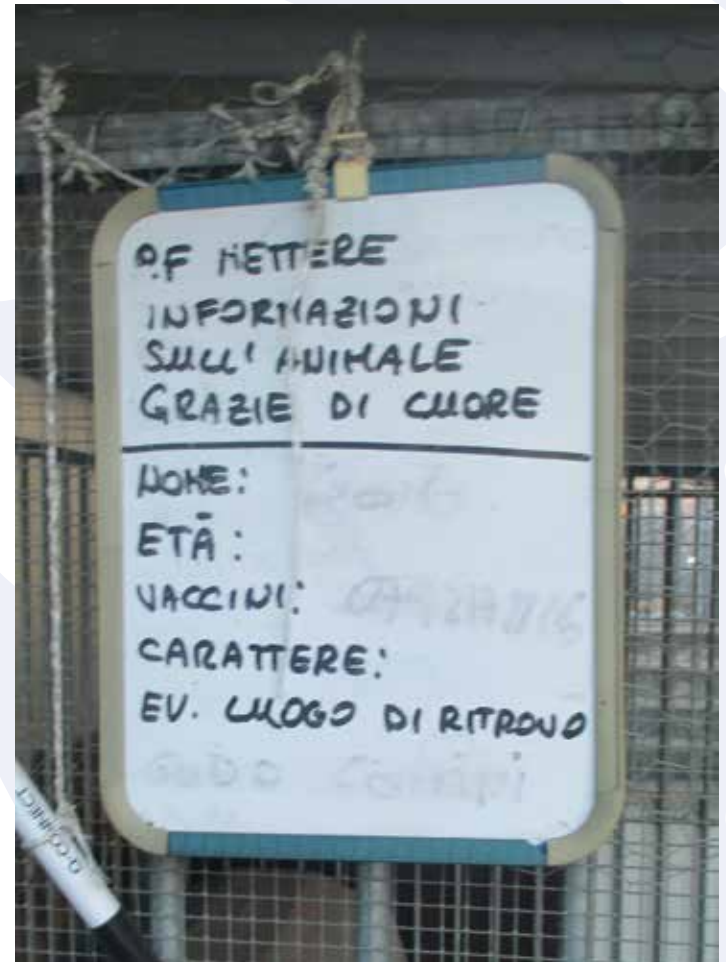 P.F METTERE
INFORMAZIONI
SULL' ANIMALE
GRAZIE DI CUORE
NOME:
ETÀ:
VACCINI:
CARATTERE:
EV. LUOGO DI RITROVO
Q-CONNECT